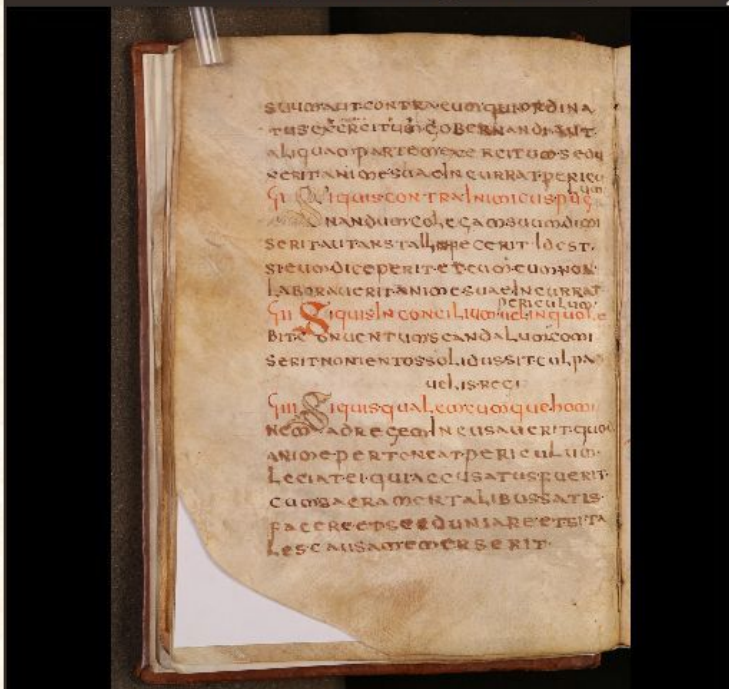 suumaut·contraeumquiordina
tusexercitumgobernandi·aut·
aliquampartemexercitumsedu
xeritanimesuaeincurratpericu
lum
ςi Siquiscontrainimicuspug
nandumcolegamsuumdimi
seritaut fecerit·idest·
sieumdiceperit·etcumeumnon
laborauerit·animesuaeincurrat
periculum·
ςii Siquisinconciliumuelinquole
bitconuentumscandalumcomi
seritnonientossolidussitculpa
uelisregi
ςiii Siquisqualemcumquehomi
nemadregemincusauerit·quod
anime·perteneat·periculum·
leciat·ei·quiaccusatusfuerit·
cumsacramentalibussatis·
facereetseeduniareetsita
lescausamemerserit·